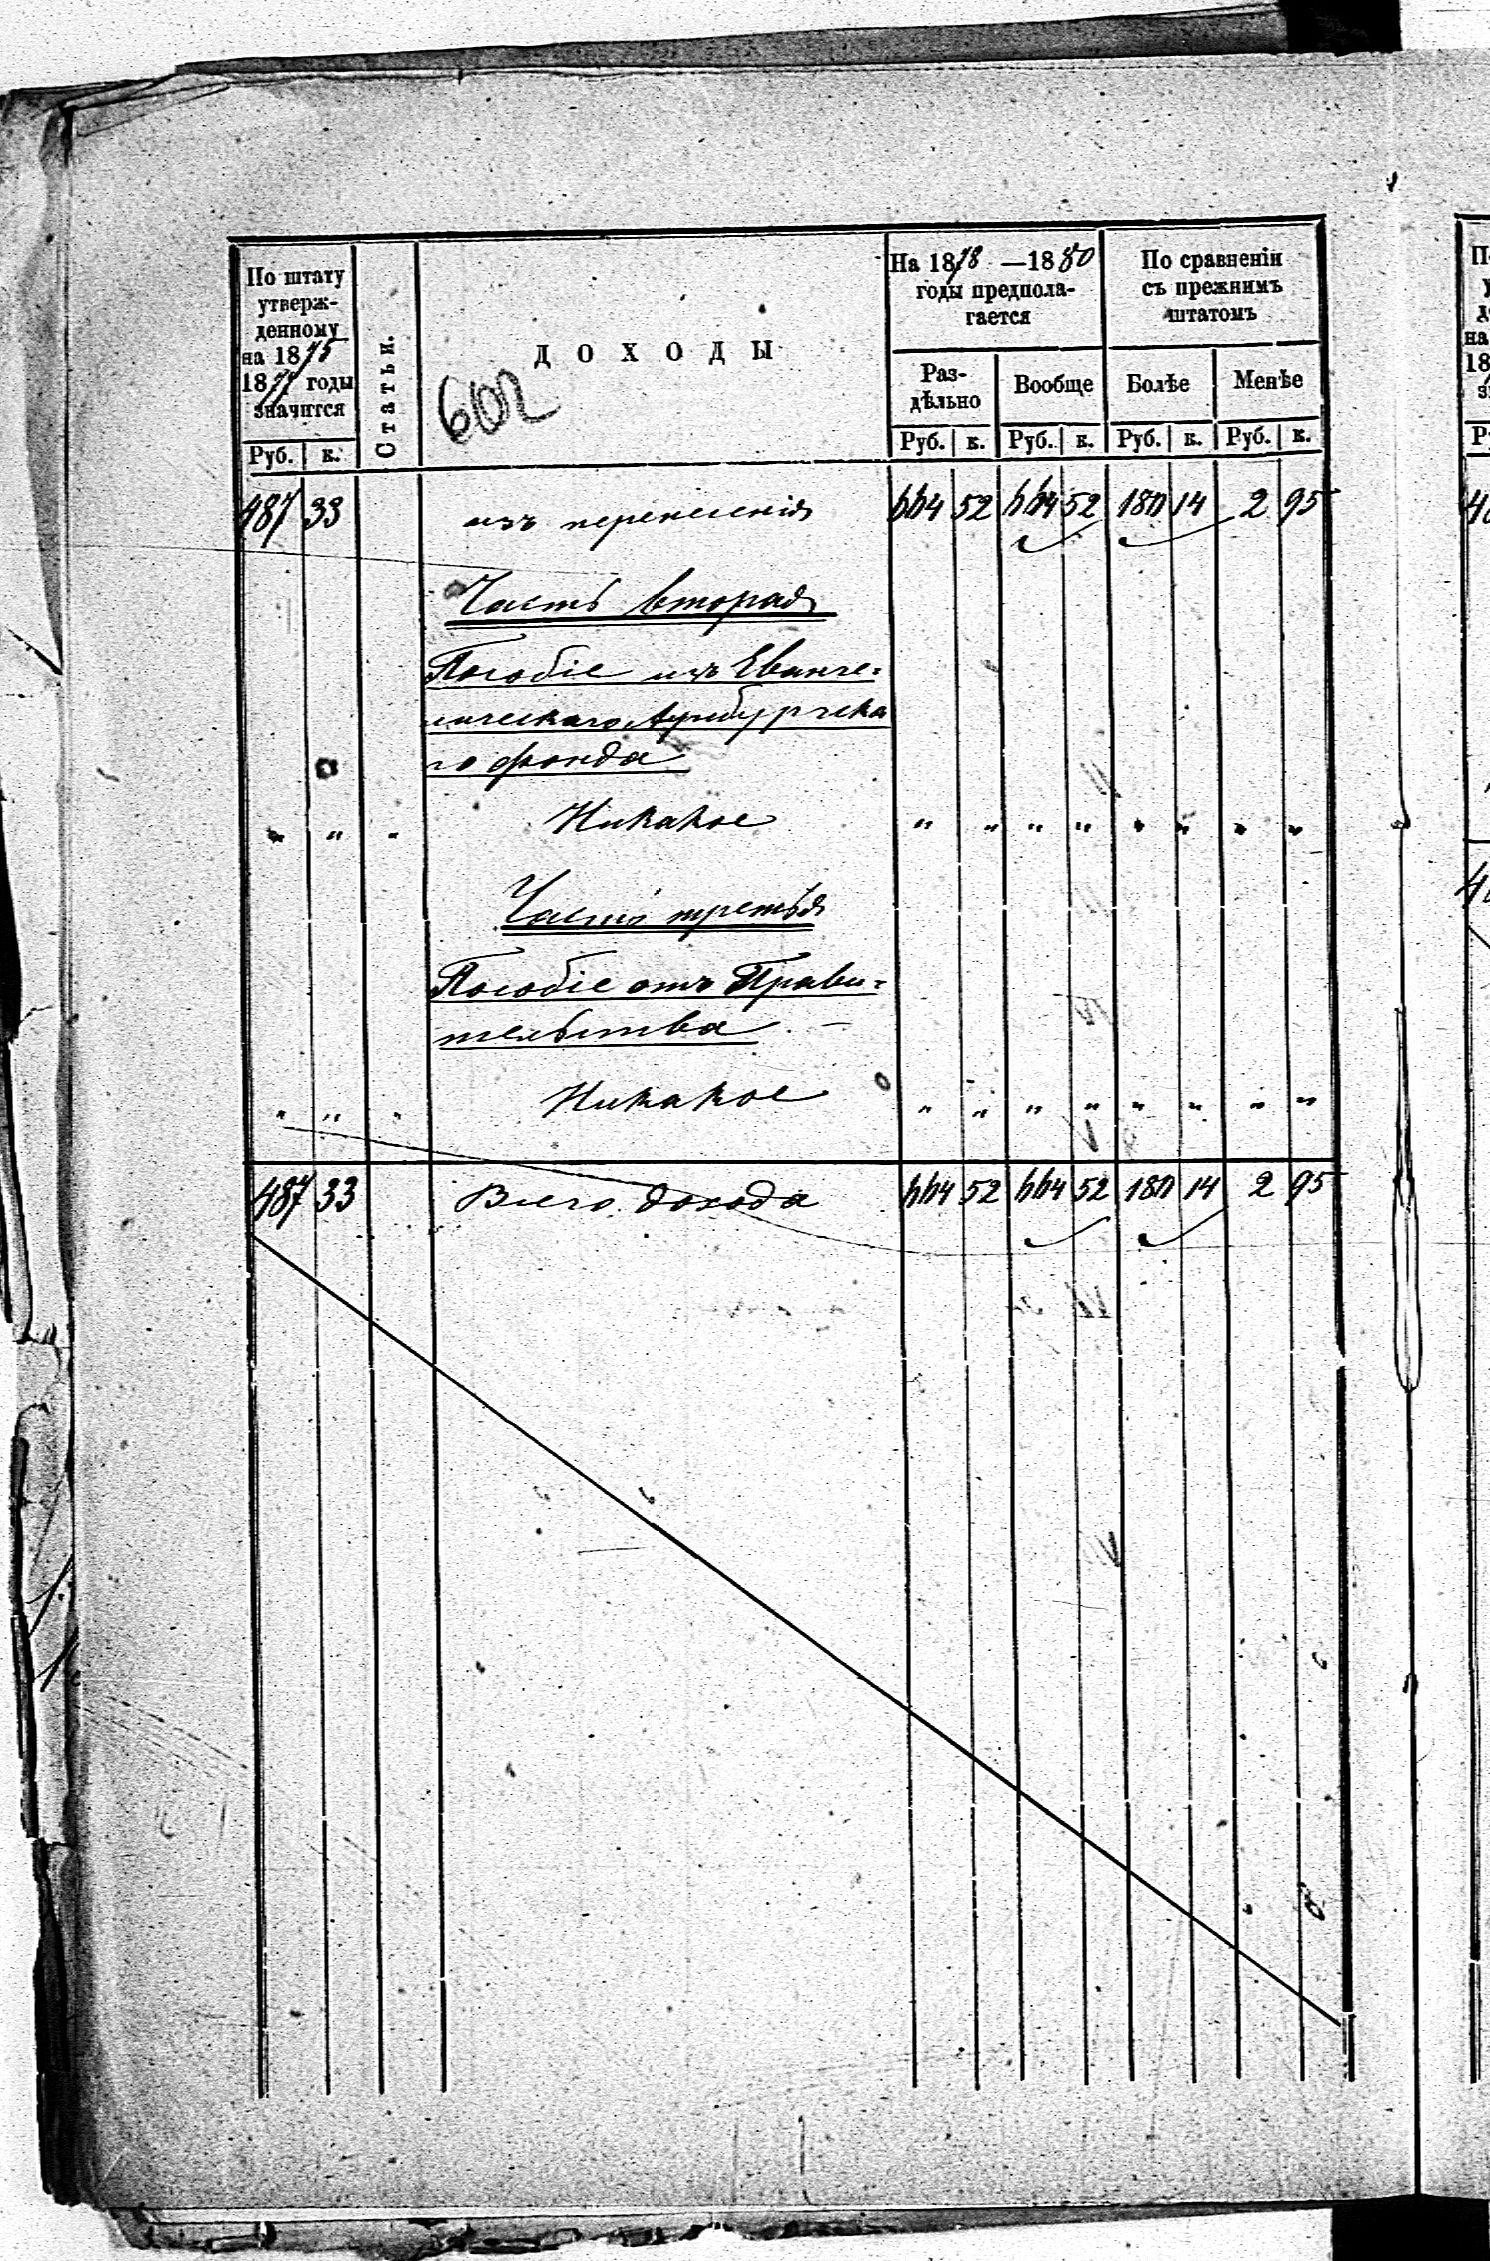 По штату
утверж-
денному
на 1875
1877 годы
значится
Руб. к.
Статьи.
ДОХОДЫ
602
На 1878 —1880
годы предпола-
гается
Раз-
дѣльно
Вообще
Руб. к. Руб. к.
По сравненіи
съ прежнимъ
штатомъ
Болѣе Менѣе
Руб. к. Руб. к.
487 33 изъ перенесенія 664 52 664 52 180 14 2 95
Часть вторая
Пособіе изъ Еванге=
лическаго Аугсбургска
го фонда
" " " Никакое " " " " " " " "
Часть третья
Пособіе отъ Прави=
тельства. —
" " " Никакое " " " " " " " "
487 33 Всего дохода 664 52 664 52 180 14 2 95